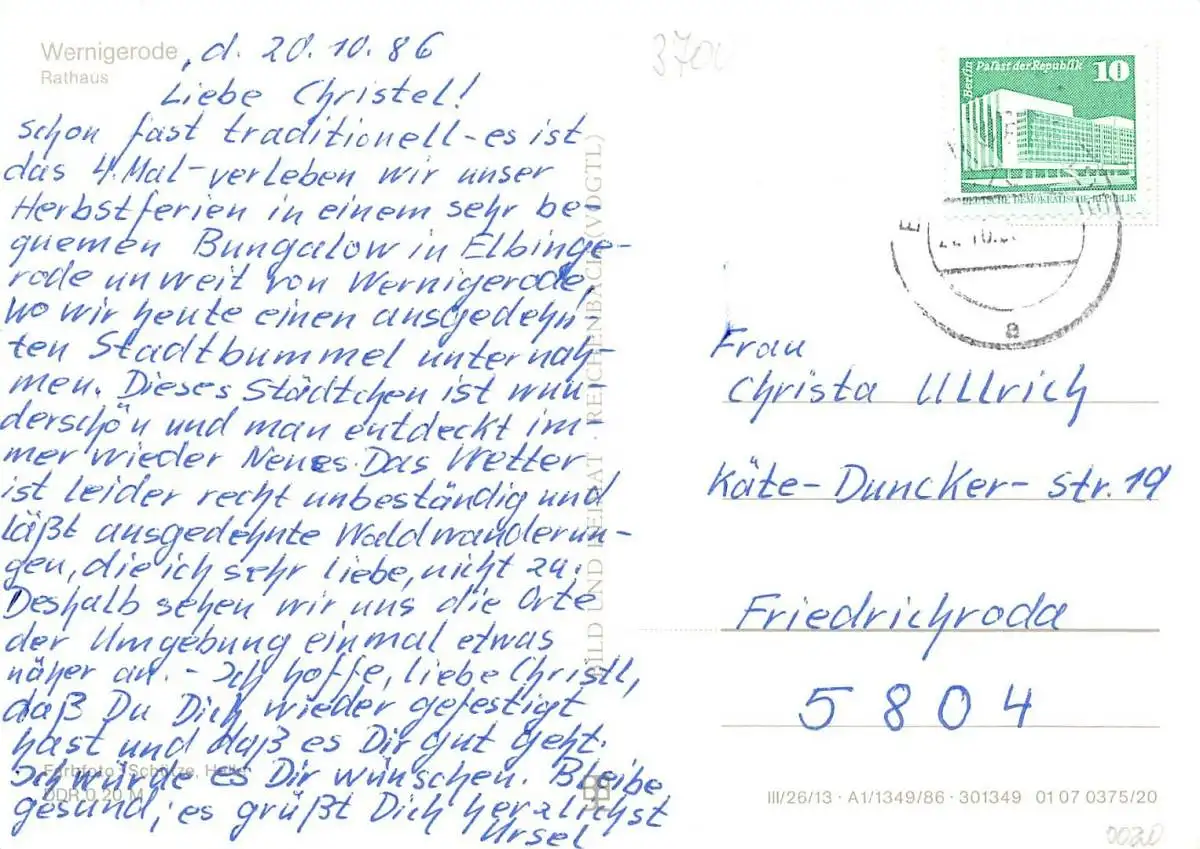 Wernigerode
Rathaus
, d. 20.10.86
Liebe Christel!
schon fast traditionell - es ist
das 4. Mal - verleben wir unser
Herbstferien in einem sehr be-
quemen Bungalow in Elbinge-
rode unweit von Wernigerode,
wo wir heute einen ausgedehn-
ten Stadtbummel unternah-
men. Dieses Städtchen ist wun-
derschön und man entdeckt im-
mer wieder Neues. Das Wetter
ist leider recht unbeständig und
läßt ausgedehnte Waldwanderun-
gen, die ich sehr liebe, nicht zu.
Deshalb sehen wir uns die Orte
der Umgebung einmal etwas
näher an. - Ich hoffe, liebe Christl,
daß Du Dich wieder gefestigt
hast und daß es Dir gut geht.
Ich würde es Dir wünschen. Bleibe
gesund, es grüßt Dich herzlichst
Ursel
Farbfoto: Schütze, Halle
DDR 0,20 M
BILD UND HEIMAT · REICHENBACH (VOGTL)
3700
Berlin Palast der Republik 10
DEUTSCHE DEMOKRATISCHE REPUBLIK
a
Frau
Christa Ullrich
Käte-Duncker-Str. 19
Friedrichroda
5804
III/26/13 · A1/1349/86 · 301349 01 07 0375/20
0020